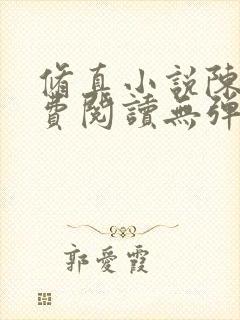 脩真小說陳
費閱讀無彈
郭愛霞